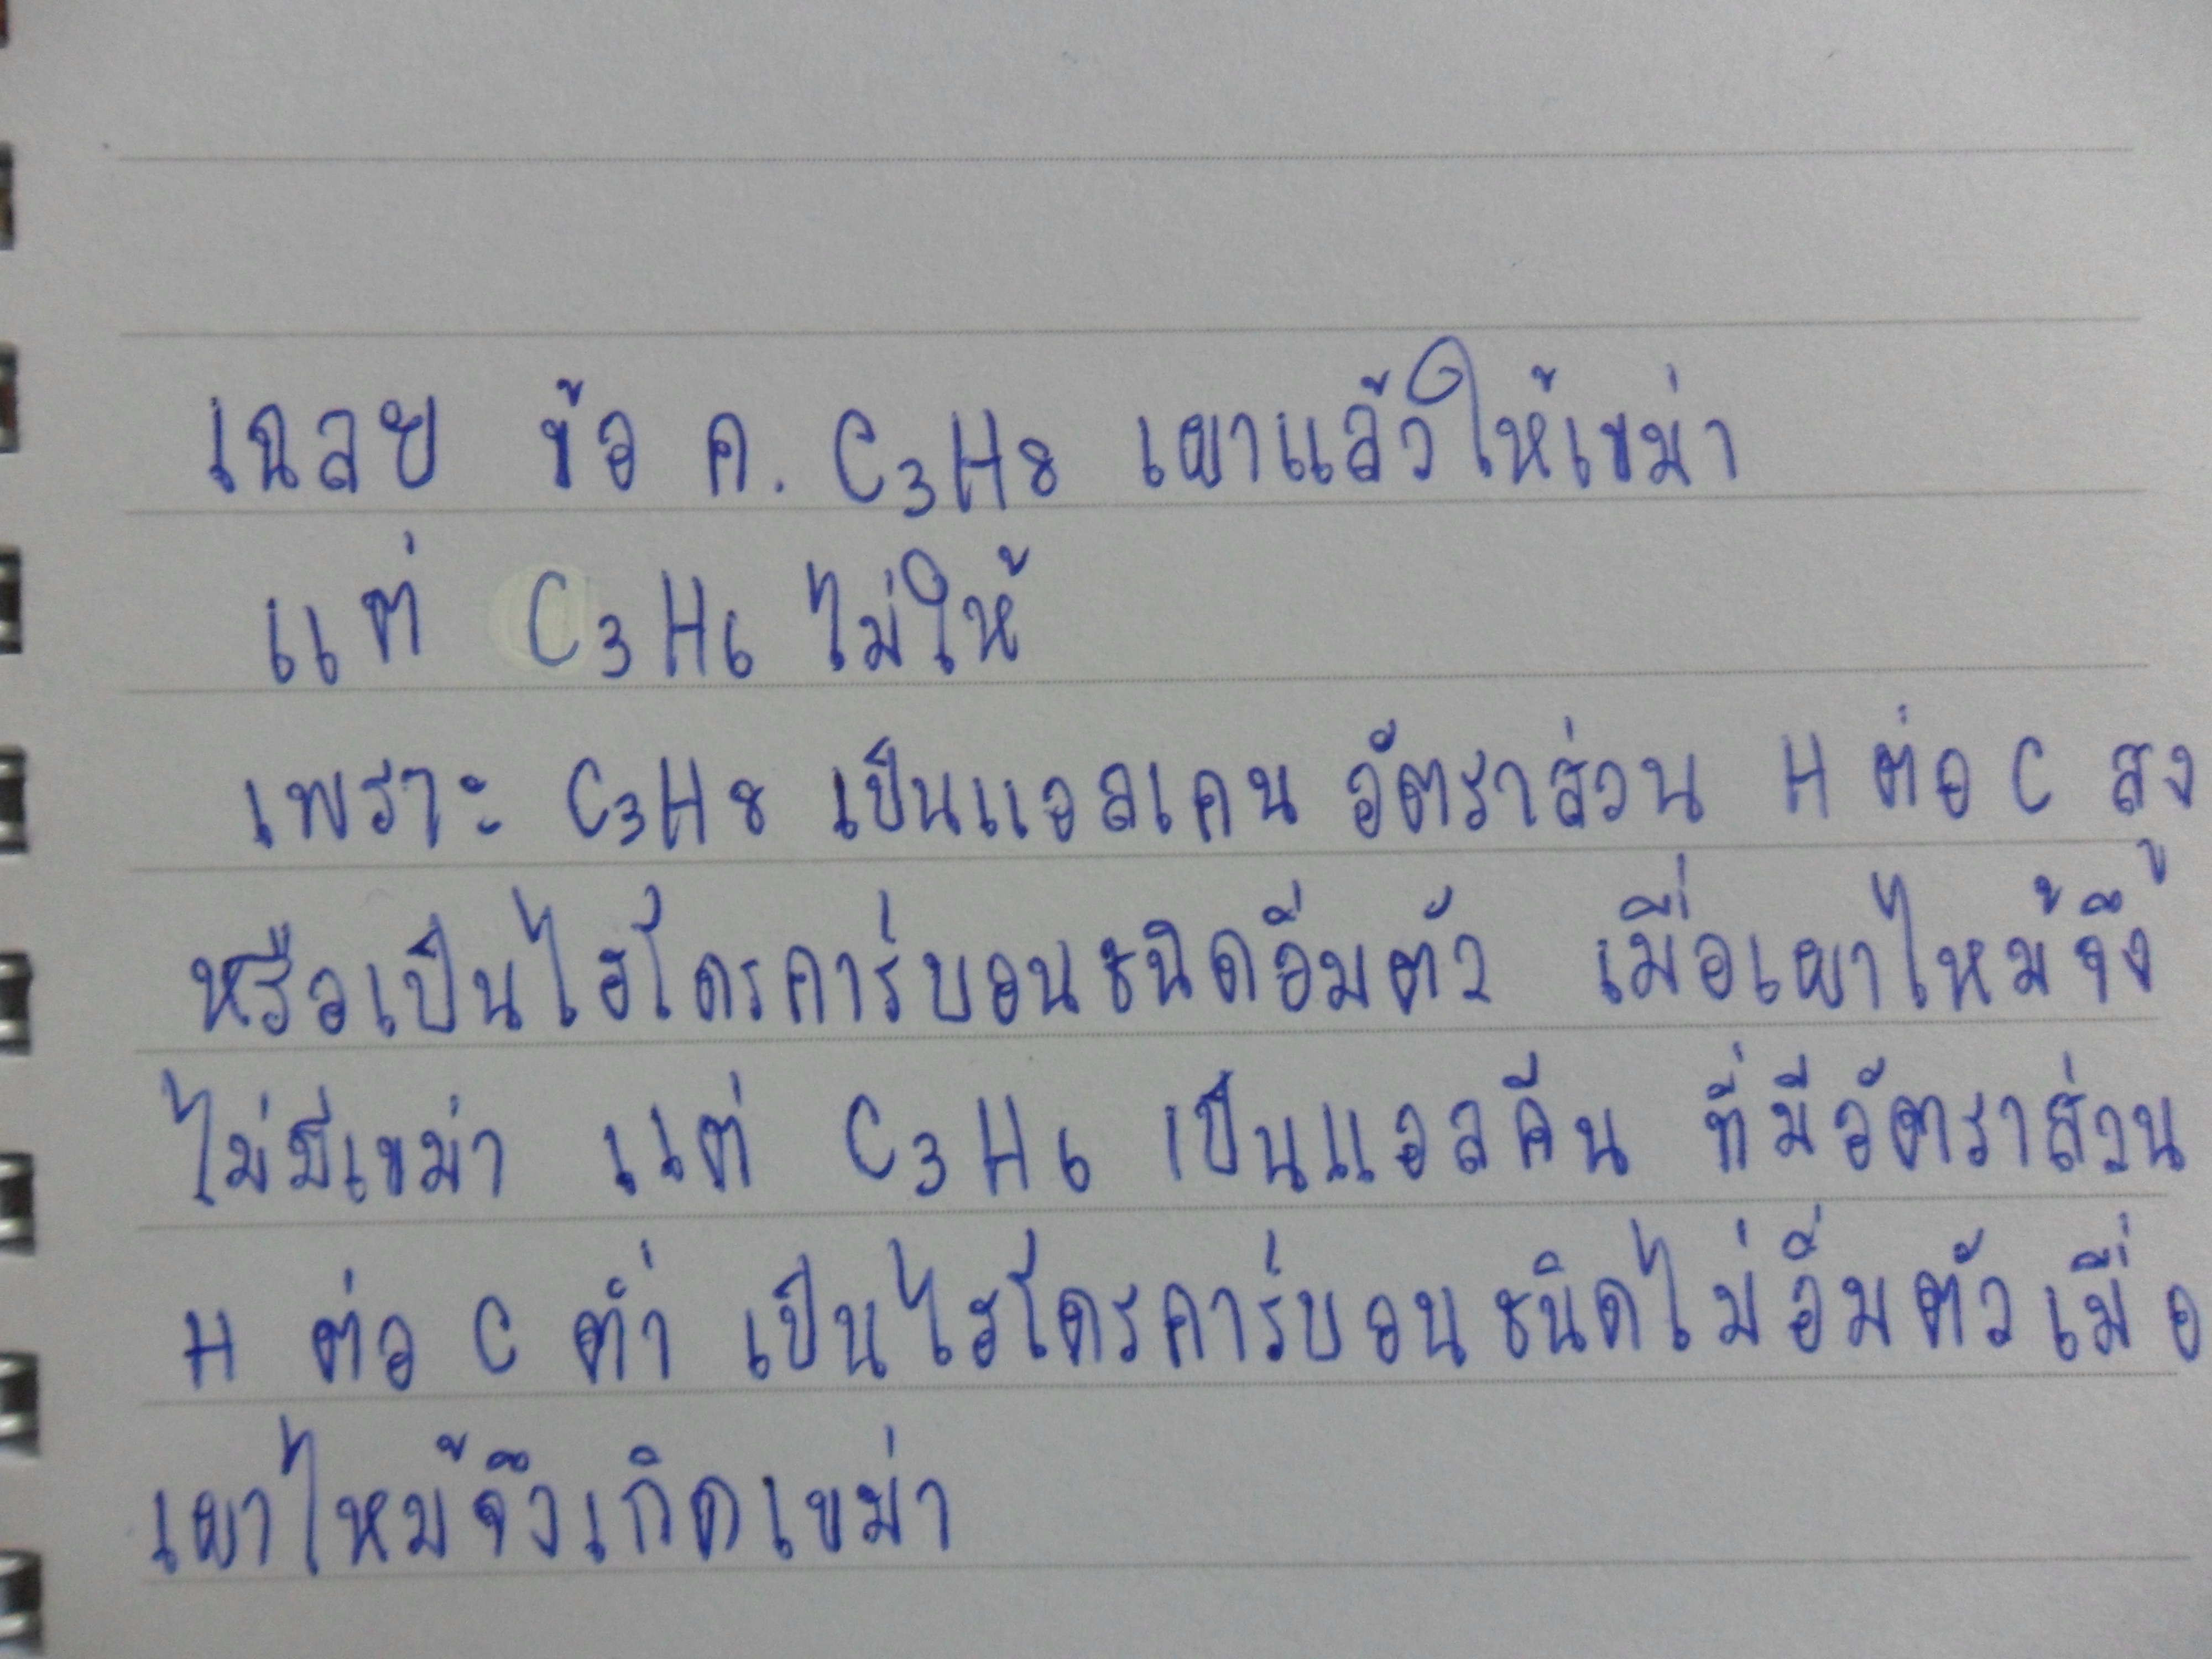 เฉลย ข้อ ค. C₃H₈ เผาแล้วให้เขม่า
แต่ C₃H₆ ไม่ให้
เพราะ C₃H₈ เป็นแอลเคน อัตราส่วน H ต่อ C สูง
หรือเป็นไฮโดรคาร์บอนชนิดอิ่มตัว เมื่อเผาไหม้จึง
ไม่มีเขม่า แต่ C₃H₆ เป็นแอลคีน ที่มีอัตราส่วน
H ต่อ C ต่ำ เป็นไฮโดรคาร์บอนชนิดไม่อิ่มตัวเมื่อ
เผาไหม้จึงเกิดเขม่า